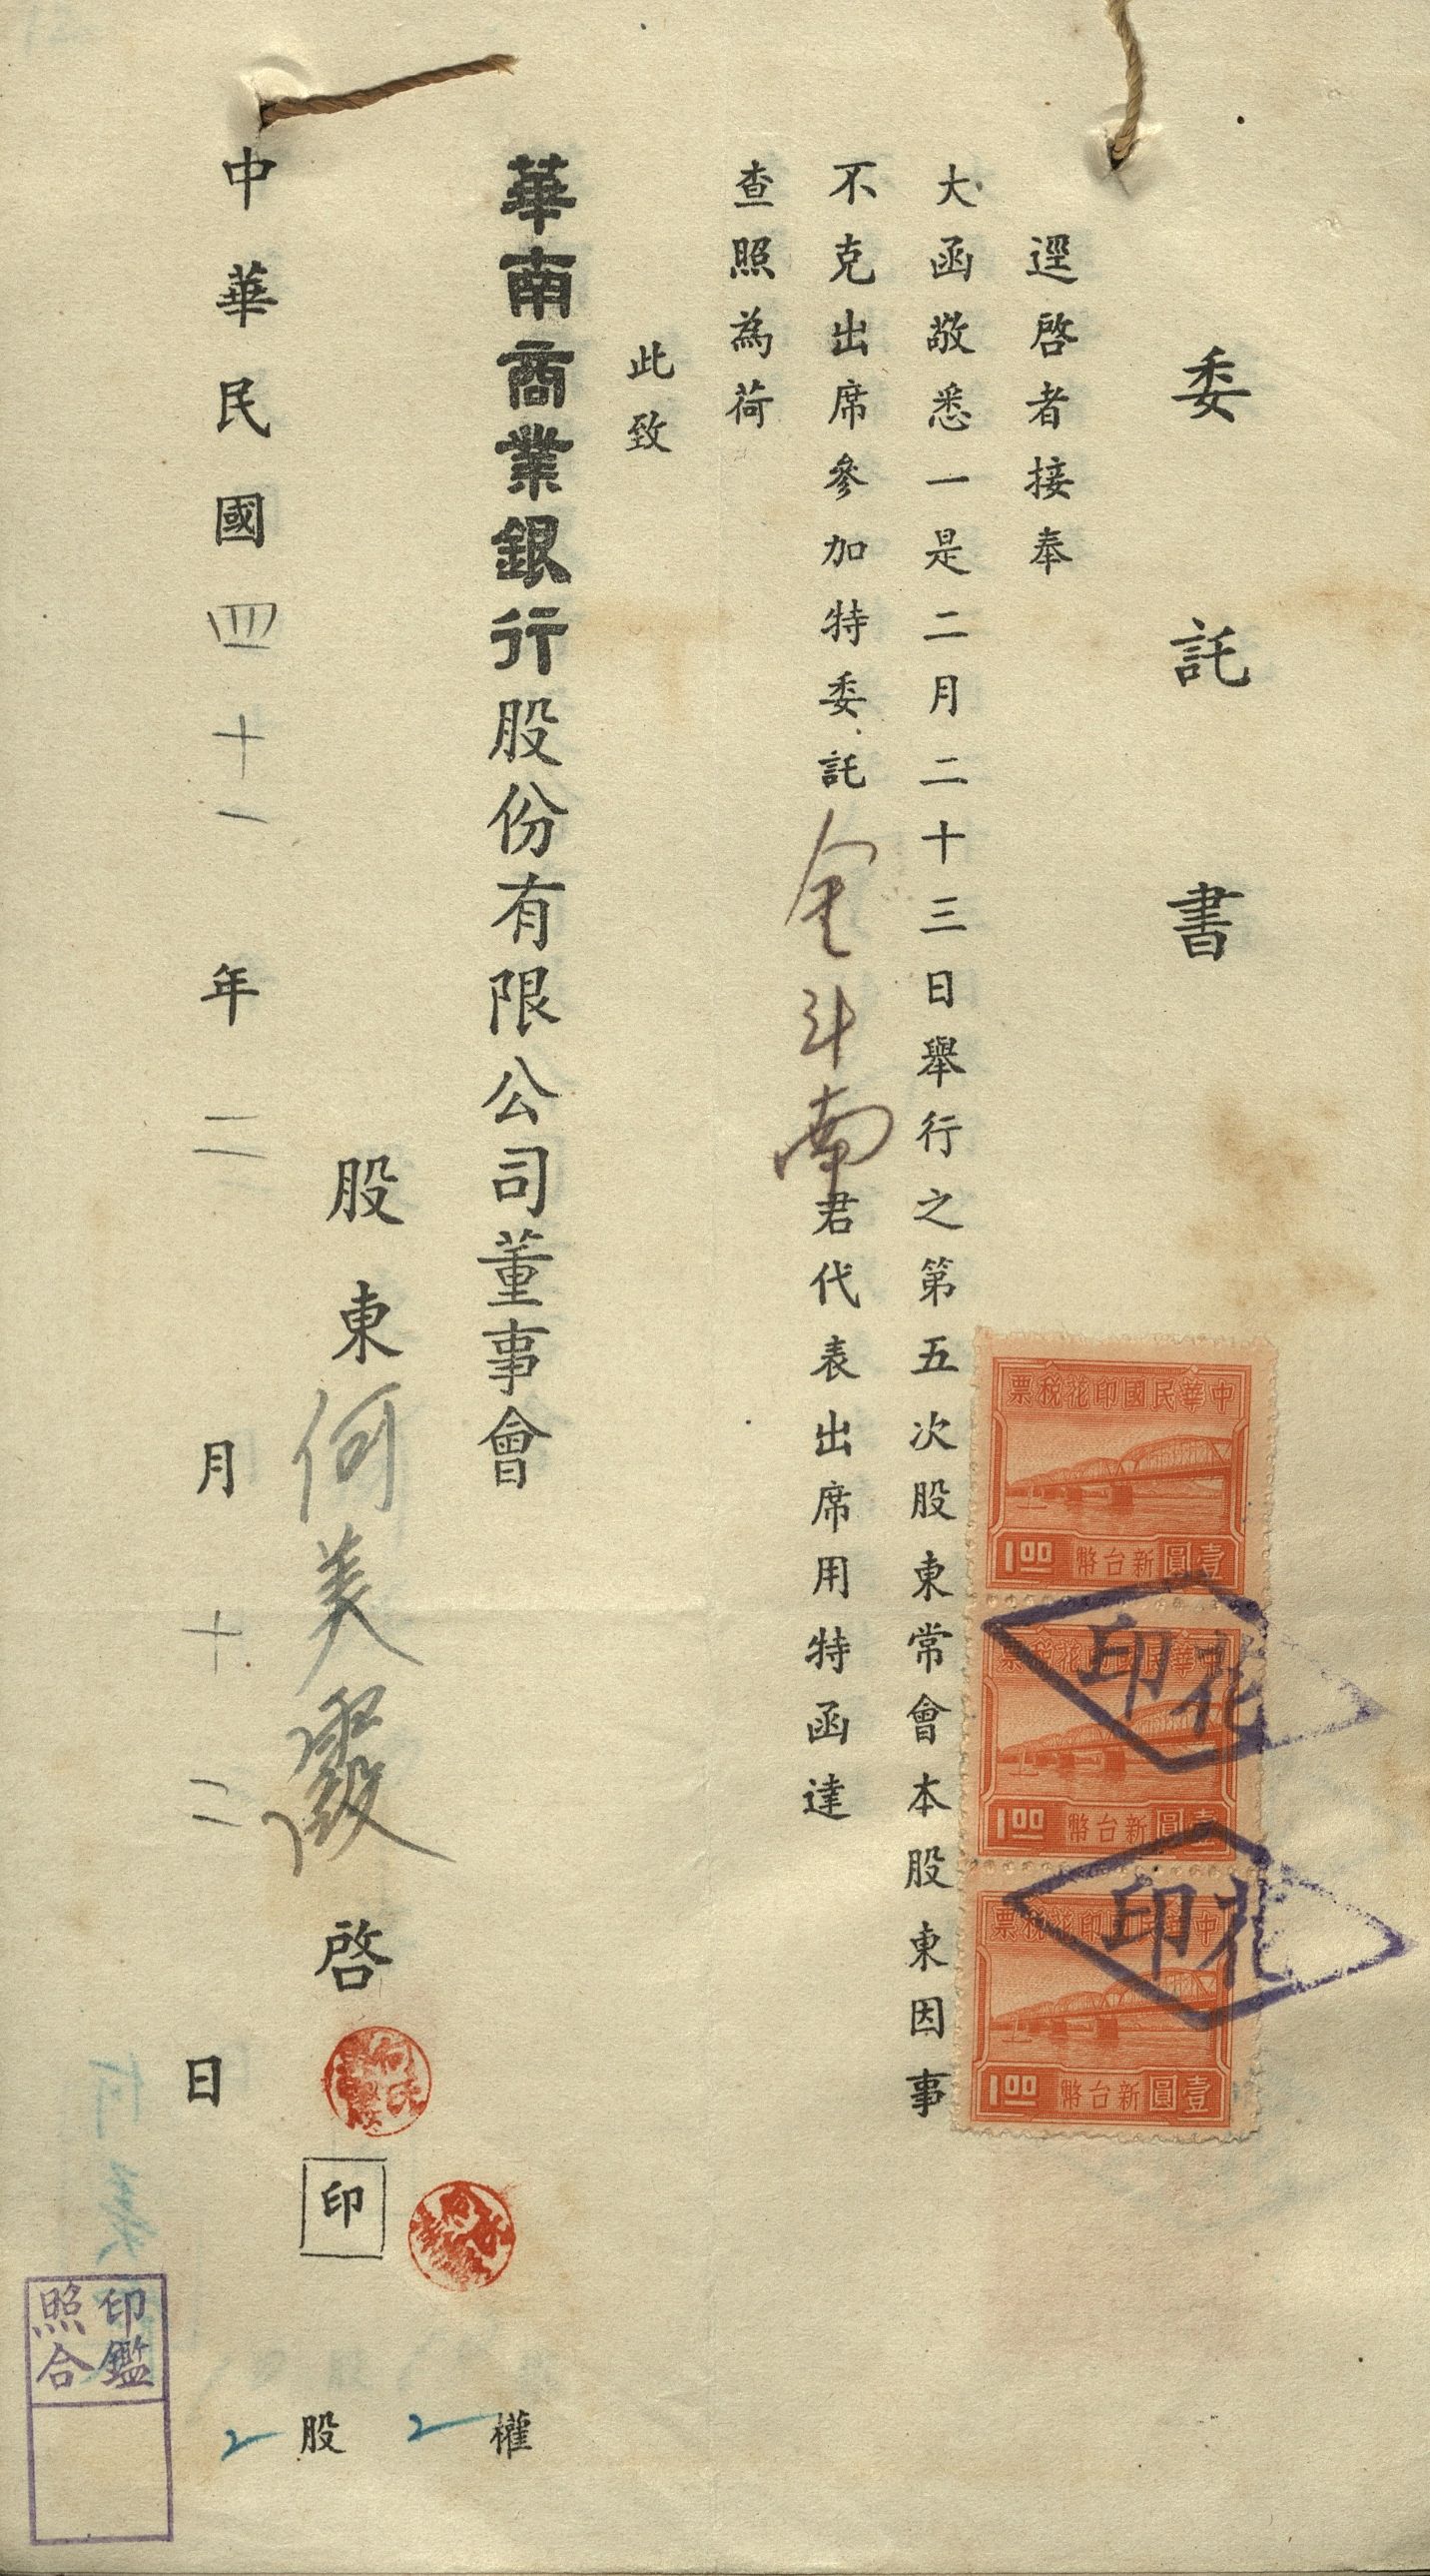 委託書
逕啓者接奉
大函敬悉一是二月二十三日舉行之第五次股東常會本股東因事
不克出席參加特委託金斗南君代表出席用特函達
查照為荷
此致
華南商業銀行股份有限公司董事會
股東何美 啓
印
中華民國四十一年二月十二日
2股 2權
印鑑
照合
中華民國印花稅票
壹圓新台幣 1.00
中華民國印花稅票
壹圓新台幣 1.00
中華民國印花稅票
壹圓新台幣 1.00
花印
花印